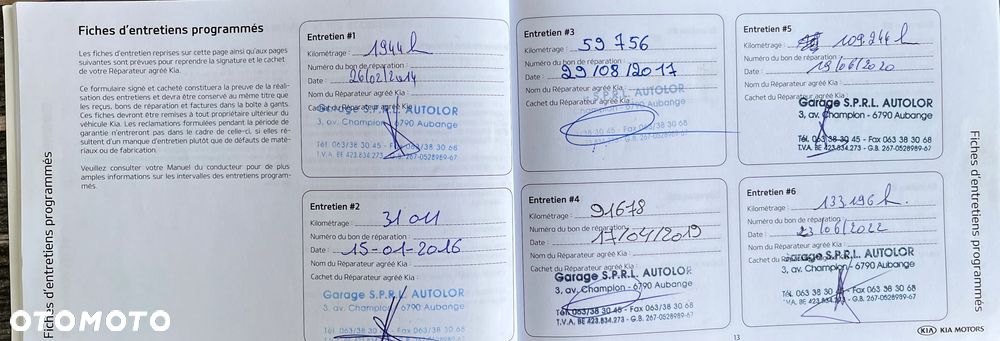 Fiches d'entretiens programmés
Les fiches d'entretien reprises sur cette page ainsi qu'aux pages
suivantes sont prévues pour reprendre la signature et le cachet
de votre Réparateur agréé Kia.
Ce formulaire signé et cacheté constituera la preuve de la réali-
sation des entretiens et devra être conservé au même titre que
les reçus, bons de réparation et factures dans la boîte à gants.
Ces fiches devront être remises à tout propriétaire ultérieur du
véhicule Kia. Les reclamations formulées pendant la période de
garantie n'entreront pas dans le cadre de celle-ci, si elles ré-
sultent d'un manque d'entretien plutôt que de défauts de maté-
riaux ou de fabrication.
Veuillez consulter votre Manuel du conducteur pour de plus
amples informations sur les intervalles des entretiens program-
més.
Fiches d'entretiens programmés
Entretien #1
Kilométrage : 1944 h
Numéro du bon de réparation :
Date : 26/02/2014
Nom du Réparateur agréé Kia :
Garage S.P.R.L. AUTOLOR
3, av. Champion - 6790 Aubange
Tél. 063/38 30 45 - Fax 063 38 30 68
T.V.A. BE 423.834.273 - G.B. 267-0528989-67
Entretien #2
Kilométrage : 31 011
Numéro du bon de réparation :
Date : 15-01-2016
Nom du Réparateur agréé Kia :
Cachet du Réparateur agréé Kia :
Garage S.P.R.L. AUTOLOR
3, av. Champion - 6790 Aubange
Tél. 063/38 30 45 - Fax 063/38 30 68
Entretien #3
Kilométrage : 59 756
Numéro du bon de réparation :
Date : 29/08/2017
Nom du Réparateur agréé Kia :
Cachet du Réparateur agréé Kia :
S.P.R.L. AUTOLOR
6790 Aubange
38 30 45 - Fax 063 38 30 68
Entretien #4
Kilométrage : 91678
Numéro du bon de réparation :
Date : 17/04/2019
Nom du Réparateur agréé Kia :
Cachet du Réparateur agréé Kia :
Garage S.P.R.L. AUTOLOR
3, av. Champion - 6790 Aubange
Tél. 063/38 30 45 - Fax 063/38 30 68
T.V.A. BE 423.834.273 - G.B. 267-0528989-67
Entretien #5
Kilométrage : 109.244 h
Numéro du bon de réparation :
Date : 19/06/2020
Nom du Réparateur agréé Kia :
Cachet du Réparateur agréé Kia :
Garage S.P.R.L. AUTOLOR
3, av. Champion - 6790 Aubange
Tél. 063 38 30 45 - Fax 063 38 30 68
T.V.A. BE 423.834.273 - G.B. 267-0528989-67
Entretien #6
Kilométrage : 133196 h.
Numéro du bon de réparation :
Date : 23/06/2022
Nom du Réparateur agréé Kia :
Cachet du Réparateur agréé Kia :
Garage S.P.R.L. AUTOLOR
3, av. Champion - 6790 Aubange
Tél. 063 38 30 45 - Fax 063 38 30 68
T.V.A. BE 423.834.273 - G.B. 267-0528989-67
Fiches d'entretiens programmés
13
KIA KIA MOTORS
OTOMOTO